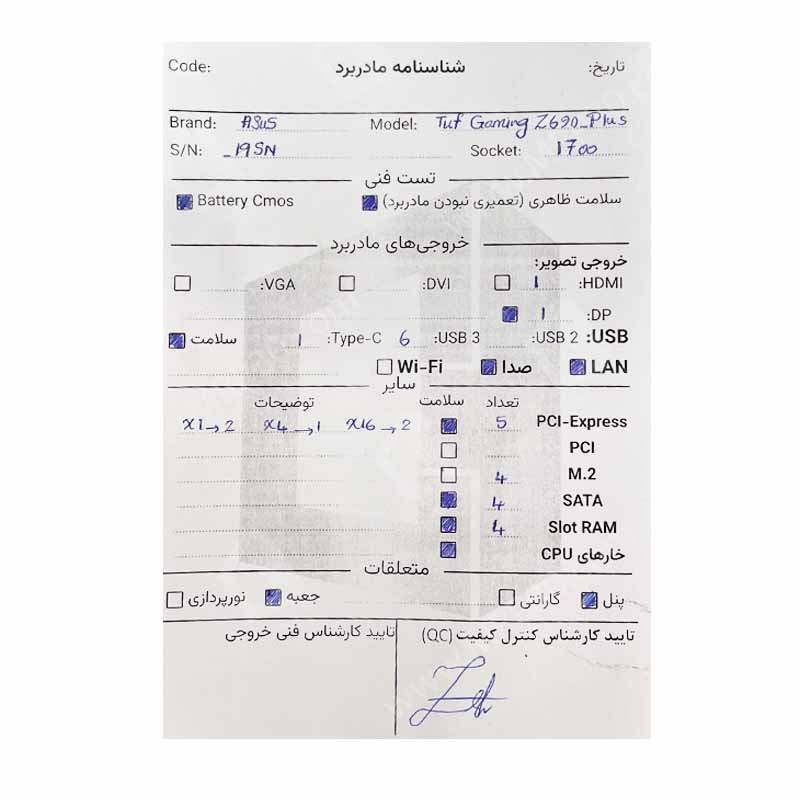 Code: شناسنامه مادربرد تاریخ:
Brand: ASUS Model: Tuf Gaming Z690_Plus
S/N: _19SN Socket: 1700
تست فنی
سلامت ظاهری (تعمیری نبودن مادربرد) Battery Cmos
خروجی‌های مادربرد
خروجی تصویر:
HDMI: 1 DVI: VGA:
DP: 1
USB: USB 2: USB 3: 6 Type-C: 1 سلامت
LAN صدا Wi-Fi
سایر
تعداد سلامت توضیحات
PCI-Express 5 X16→2 X4→1 X1→2
PCI
M.2 4
SATA 4
Slot RAM 4
خارهای CPU
متعلقات
پنل گارانتی جعبه نورپردازی
تایید کارشناس کنترل کیفیت (QC) تایید کارشناس فنی خروجی